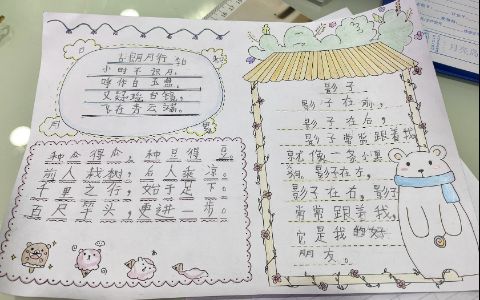 古朗月行
小时不识月，
呼作白玉盘。
又疑瑶台镜，
飞在青云端。
月
种瓜得瓜，种豆得豆。
前人栽树，后人乘凉。
千里之行，始于足下。
百尺竿头，更进一步。
影子
影子在前，
影子在后，
影子常常跟着我，
就像一条小黑
狗。影子在左，
影子在右，影子
常常跟着我，
它是我的好
朋友。